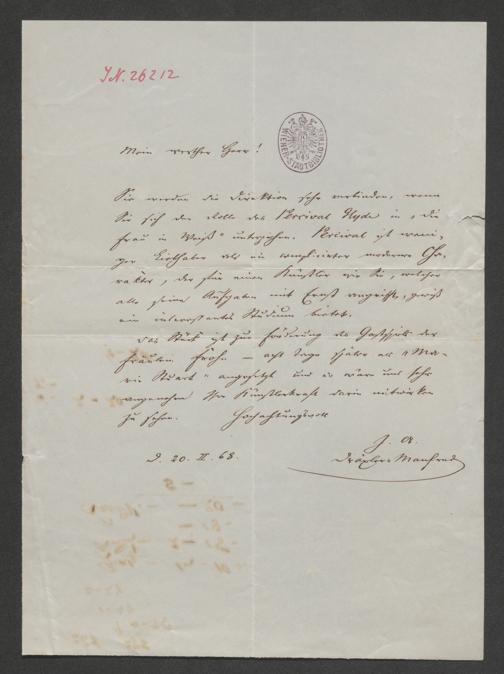 J.N. 26212
WIENER-STADTBIBLIOTHEK
Mein werther Herr!
Sie werden die Direktion sehr verbinden, wenn
Sie sich der Rolle des Percival Glyde in „die
Frau in Weiß“ unterziehen. Percival ist weni-
ger Liebhaber als ein complicirter moderner Cha-
rakter, der für einen Künstler wie Sie, welcher
alle seine Aufgaben mit Ernst angreift, gewiß
ein interessantes Studium bietet.
Das Stück ist zur Förderung des Gastspiels der
Fräulein – acht Tage später als „Ma-
ria Stuart“ angesetzt und es wäre uns sehr
angenehm Ihre Künstlerkraft darin mitwirken
zu sehen. Hochachtungsvoll
J. A.
D. 20. II. 68. Dräxler-Manfred